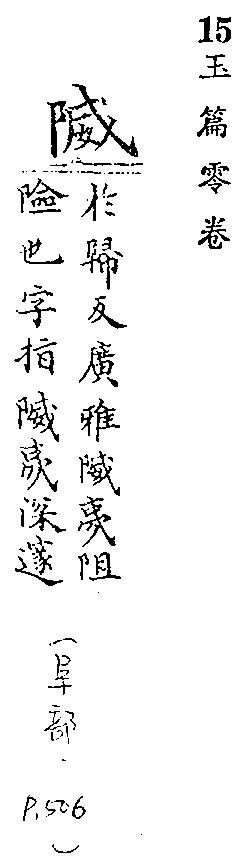 15玉篇零卷
隇
於歸反廣雅隇夷阻
險也字指隇夷深邃
(阜部.
P.506)